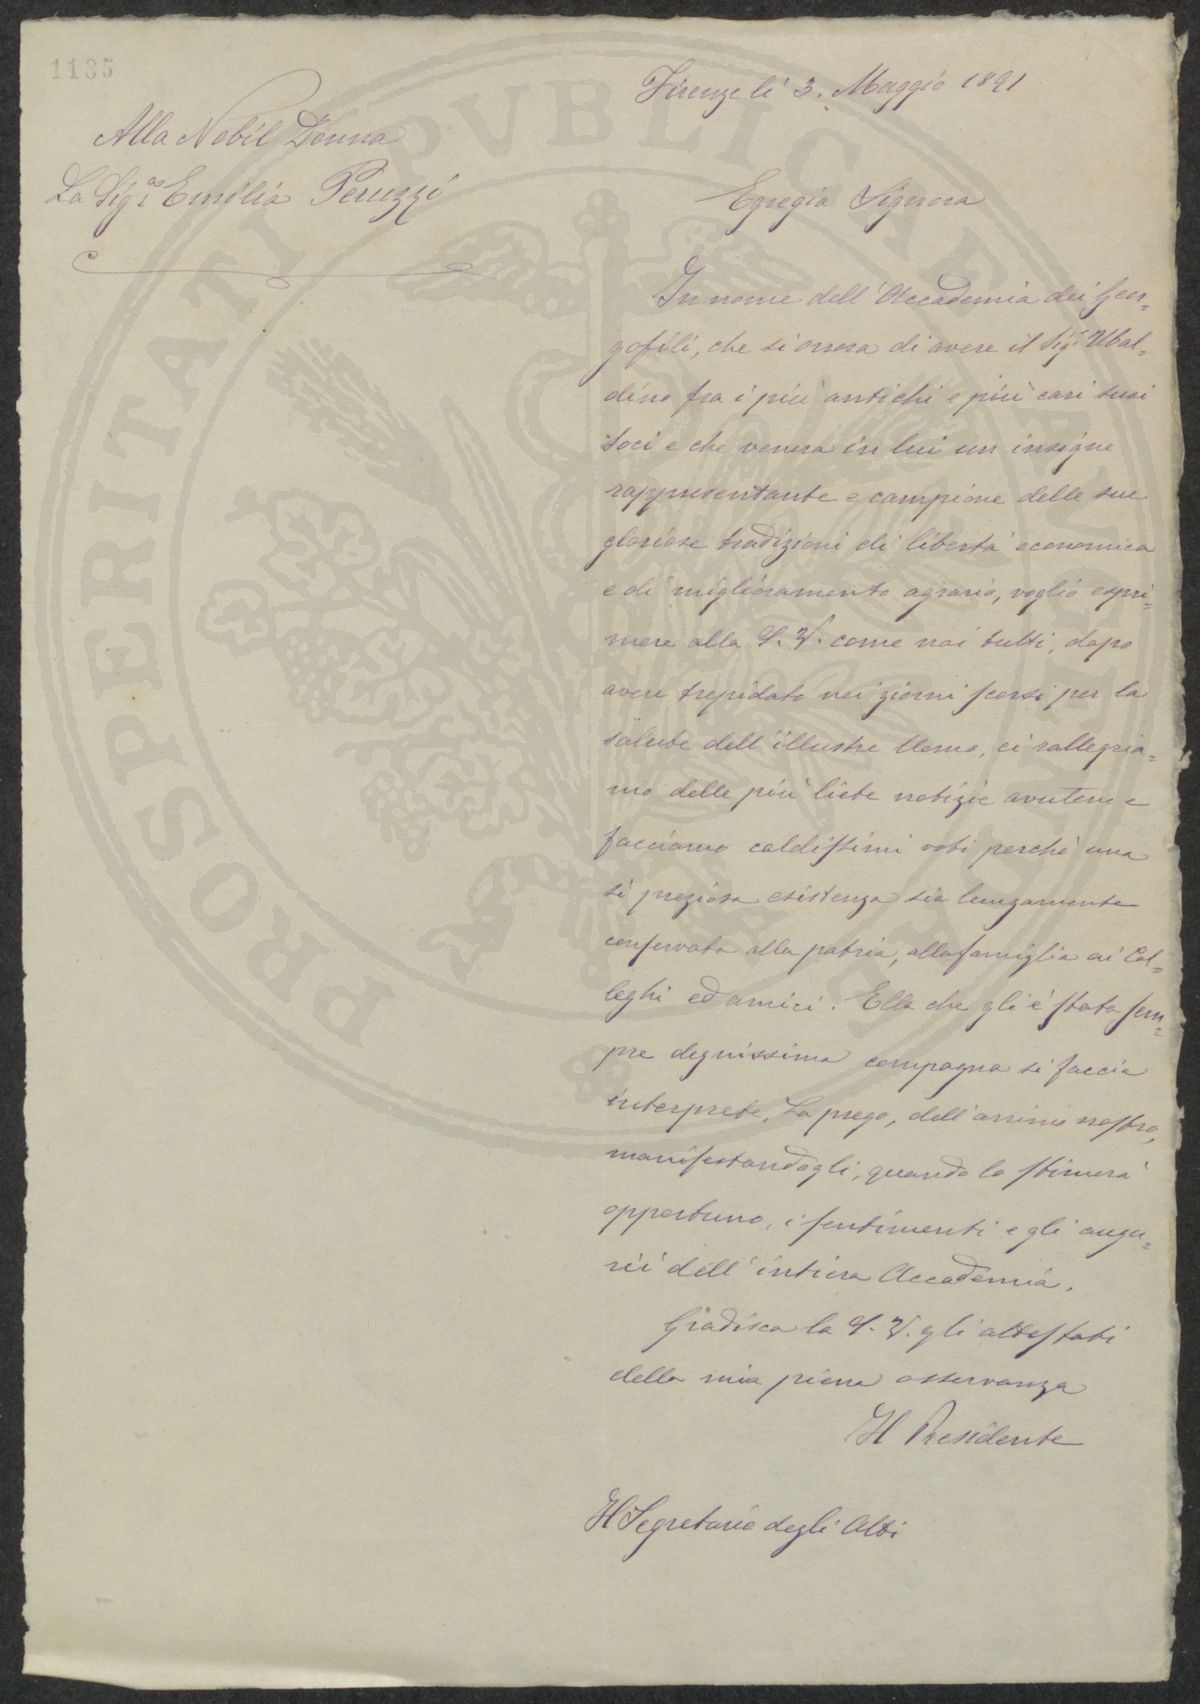 1185
Firenze lì 3. Maggio 1891
Alla Nobil Donna
La Sig.ra Emilia Peruzzi
Egregia Signora
In nome dell'Accademia dei Geor=
gofili, che si onora di avere il Sigr. Ubal=
dino fra i più antichi e più cari suoi
soci e che venera in lui un insigne
rappresentante e campione delle sue
gloriose tradizioni di libertà economica
e di miglioramento agrario, voglio espri=
mere alla S. V. come noi tutti, dopo
avere trepidato nei giorni scorsi per la
salute dell'illustre Uomo, ci rallegria=
mo delle più liete notizie avutene e
facciamo caldissimi voti perchè una
sì preziosa esistenza sia lungamente
conservata alla patria, alla famiglia ai Col=
leghi ed amici. Ella che gli è stata sem=
pre degnissima compagna si faccia
interprete, La prego, dell'animo nostro,
manifestandogli, quando lo stimerà
opportuno, i sentimenti e gli augu=
rii dell'intiera Accademia.
Gradisca la S. V. gli attestati
della mia piena osservanza
Il Presidente
Il Segretario degli Atti
PROSPERITATI PVBLICAE